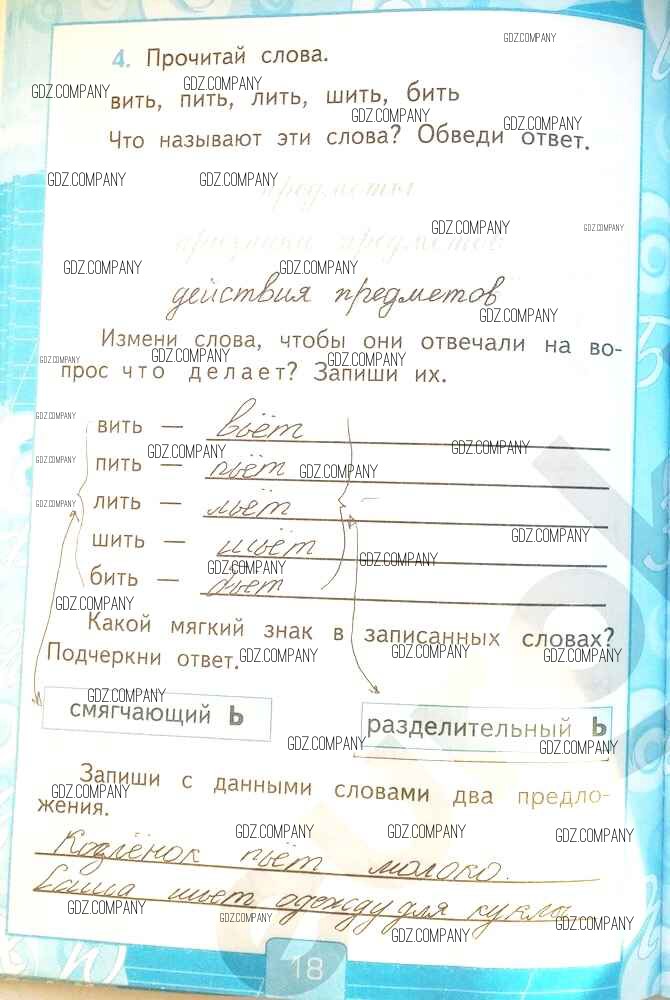 4. Прочитай слова.
вить, пить, лить, шить, бить
Что называют эти слова? Обведи ответ.
предметы
признаки предметов
действия предметов
Измени слова, чтобы они отвечали на во-
прос что делает? Запиши их.
вить — вьёт
пить — пьёт
лить — льёт
шить — шьёт
бить — бьёт
Какой мягкий знак в записанных словах?
Подчеркни ответ.
смягчающий ь разделительный ь
Запиши с данными словами два предло-
жения.
Козлёнок пьёт молоко.
Саша шьет одежду для куклы
18
GDZ.COMPANY